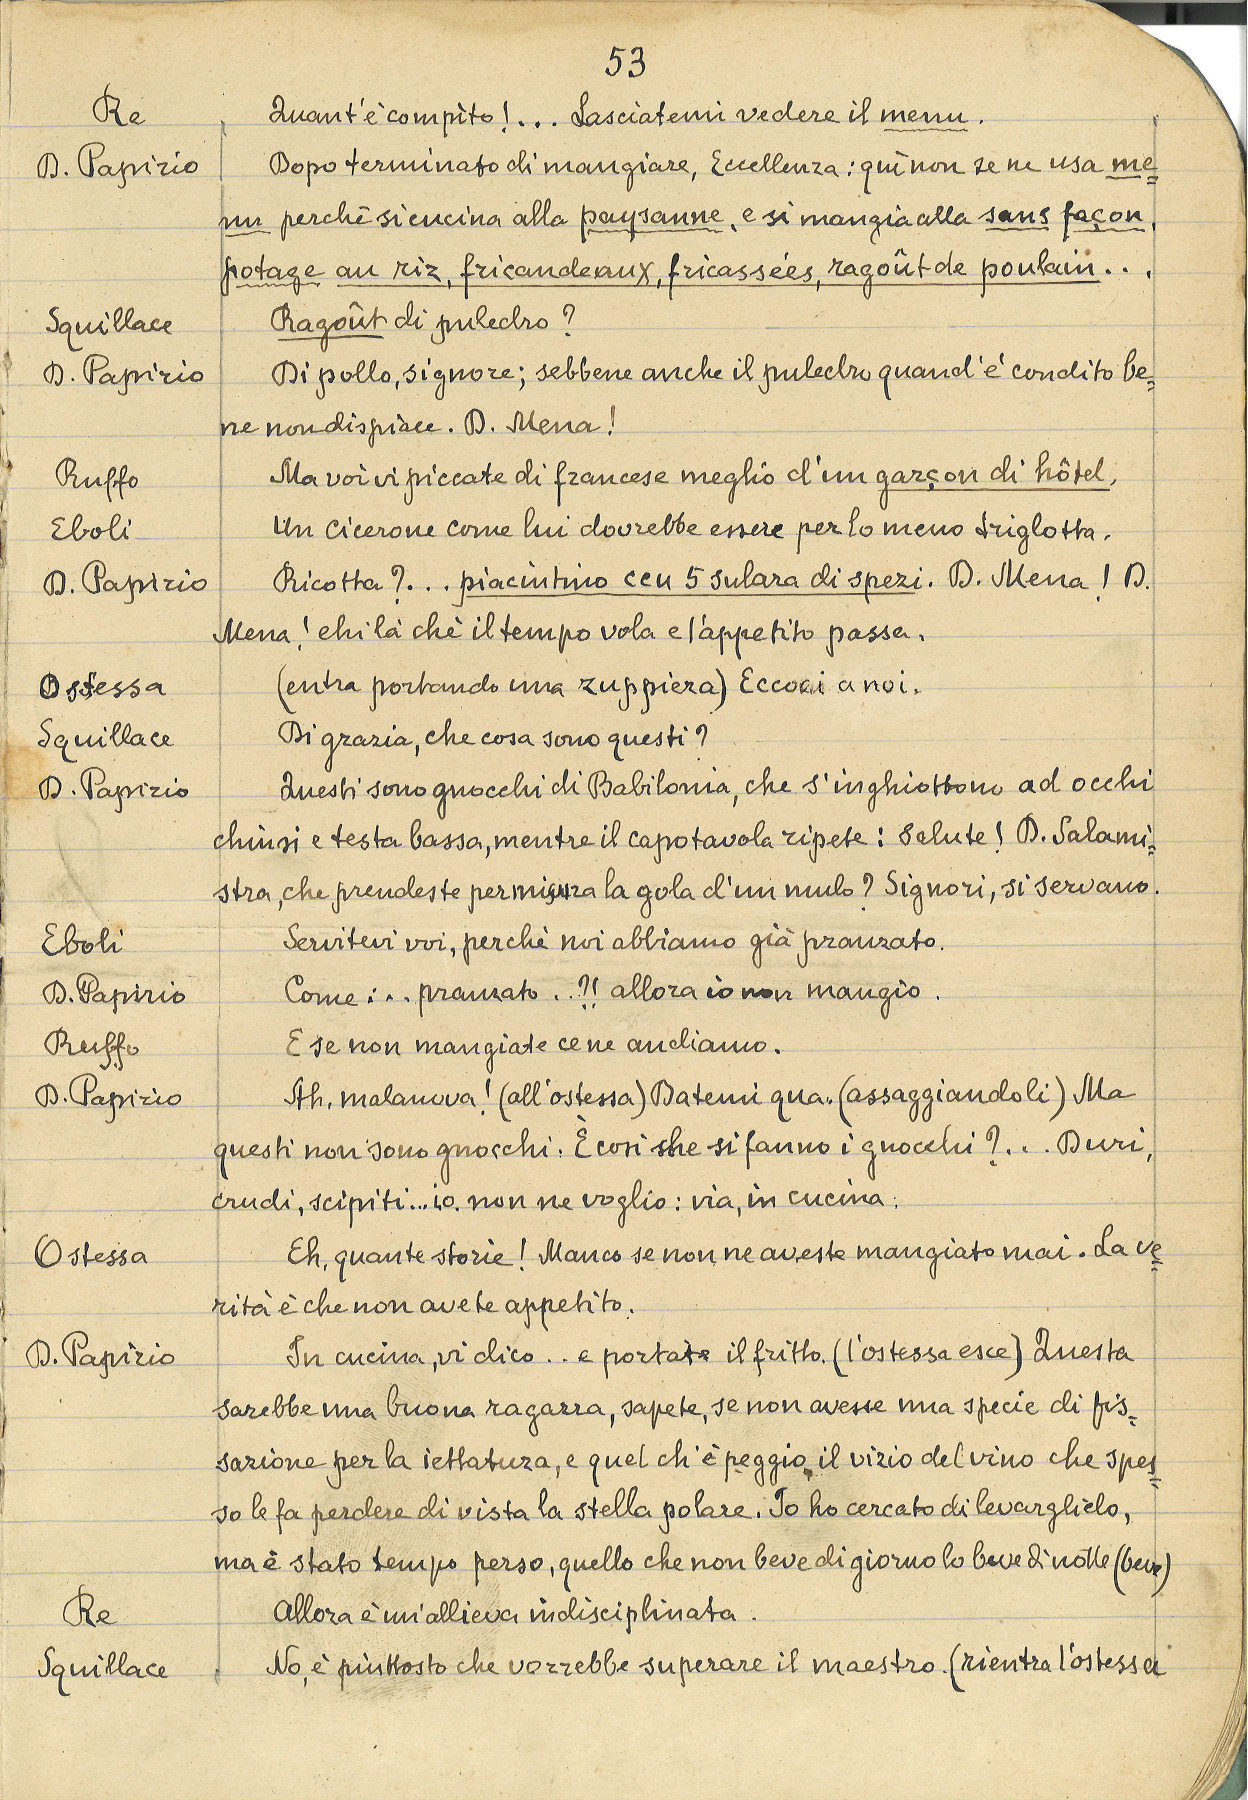 53
Re Quant'è compìto!... Lasciatemi vedere il menu.
D. Papirio Dopo terminato di mangiare, Eccellenza: quì non se ne usa me=
nu perchè si cucina alla paysanne, e si mangia alla sans façon,
potage au riz, fricandeaux, fricassées, ragoût de poulain...
Squillace Ragoût di puledro?
D. Papirio Di pollo, signore; sebbene anche il puledro quand'è condito be=
ne non dispiace. D. Mena!
Ruffo Ma voi vi piccate di francese meglio d'un garçon di hôtel.
Eboli Un cicerone come lui dovrebbe essere per lo meno triglotta.
D. Papirio Ricotta?... piacintino ccu 5 sulara di spezi. D. Mena! D.
Mena! ehi là chè il tempo vola e l'appetito passa.
Ostessa (entra portando una zuppiera) Eccoci a noi.
Squillace Di grazia, che cosa sono questi?
D. Papirio Questi sono gnocchi di Babilonia, che s'inghiottono ad occhi
chiusi e testa bassa, mentre il capotavola ripete: Salute! D. Salami=
stra, che prendeste per misura la gola d'un mulo? Signori, si servano.
Eboli Servitevi voi, perchè noi abbiamo già pranzato.
D. Papirio Come... pranzato..?! allora io non mangio.
Ruffo E se non mangiate ce ne andiamo.
D. Papirio Ah, malanova! (all'ostessa) Datemi qua. (assaggiandoli) Ma
questi non sono gnocchi. È così che si fanno i gnocchi?... Duri,
crudi, scipiti... io non ne voglio: via, in cucina.
Ostessa Eh, quante storie! Manco se non ne aveste mangiato mai. La ve=
rità è che non avete appetito.
D. Papirio In cucina, vi dico.. e portate il fritto. (l'ostessa esce) Questa
sarebbe una buona ragazza, sapete, se non avesse una specie di fis=
sazione per la iettatura, e quel ch'è peggio, il vizio del vino che spes=
so le fa perdere di vista la stella polare. Io ho cercato di levarglielo,
ma è stato tempo perso, quello che non beve di giorno lo beve di notte (beve)
Re Allora è un'allieva indisciplinata.
Squillace No, è piuttosto che vorrebbe superare il maestro. (rientra l'ostessa